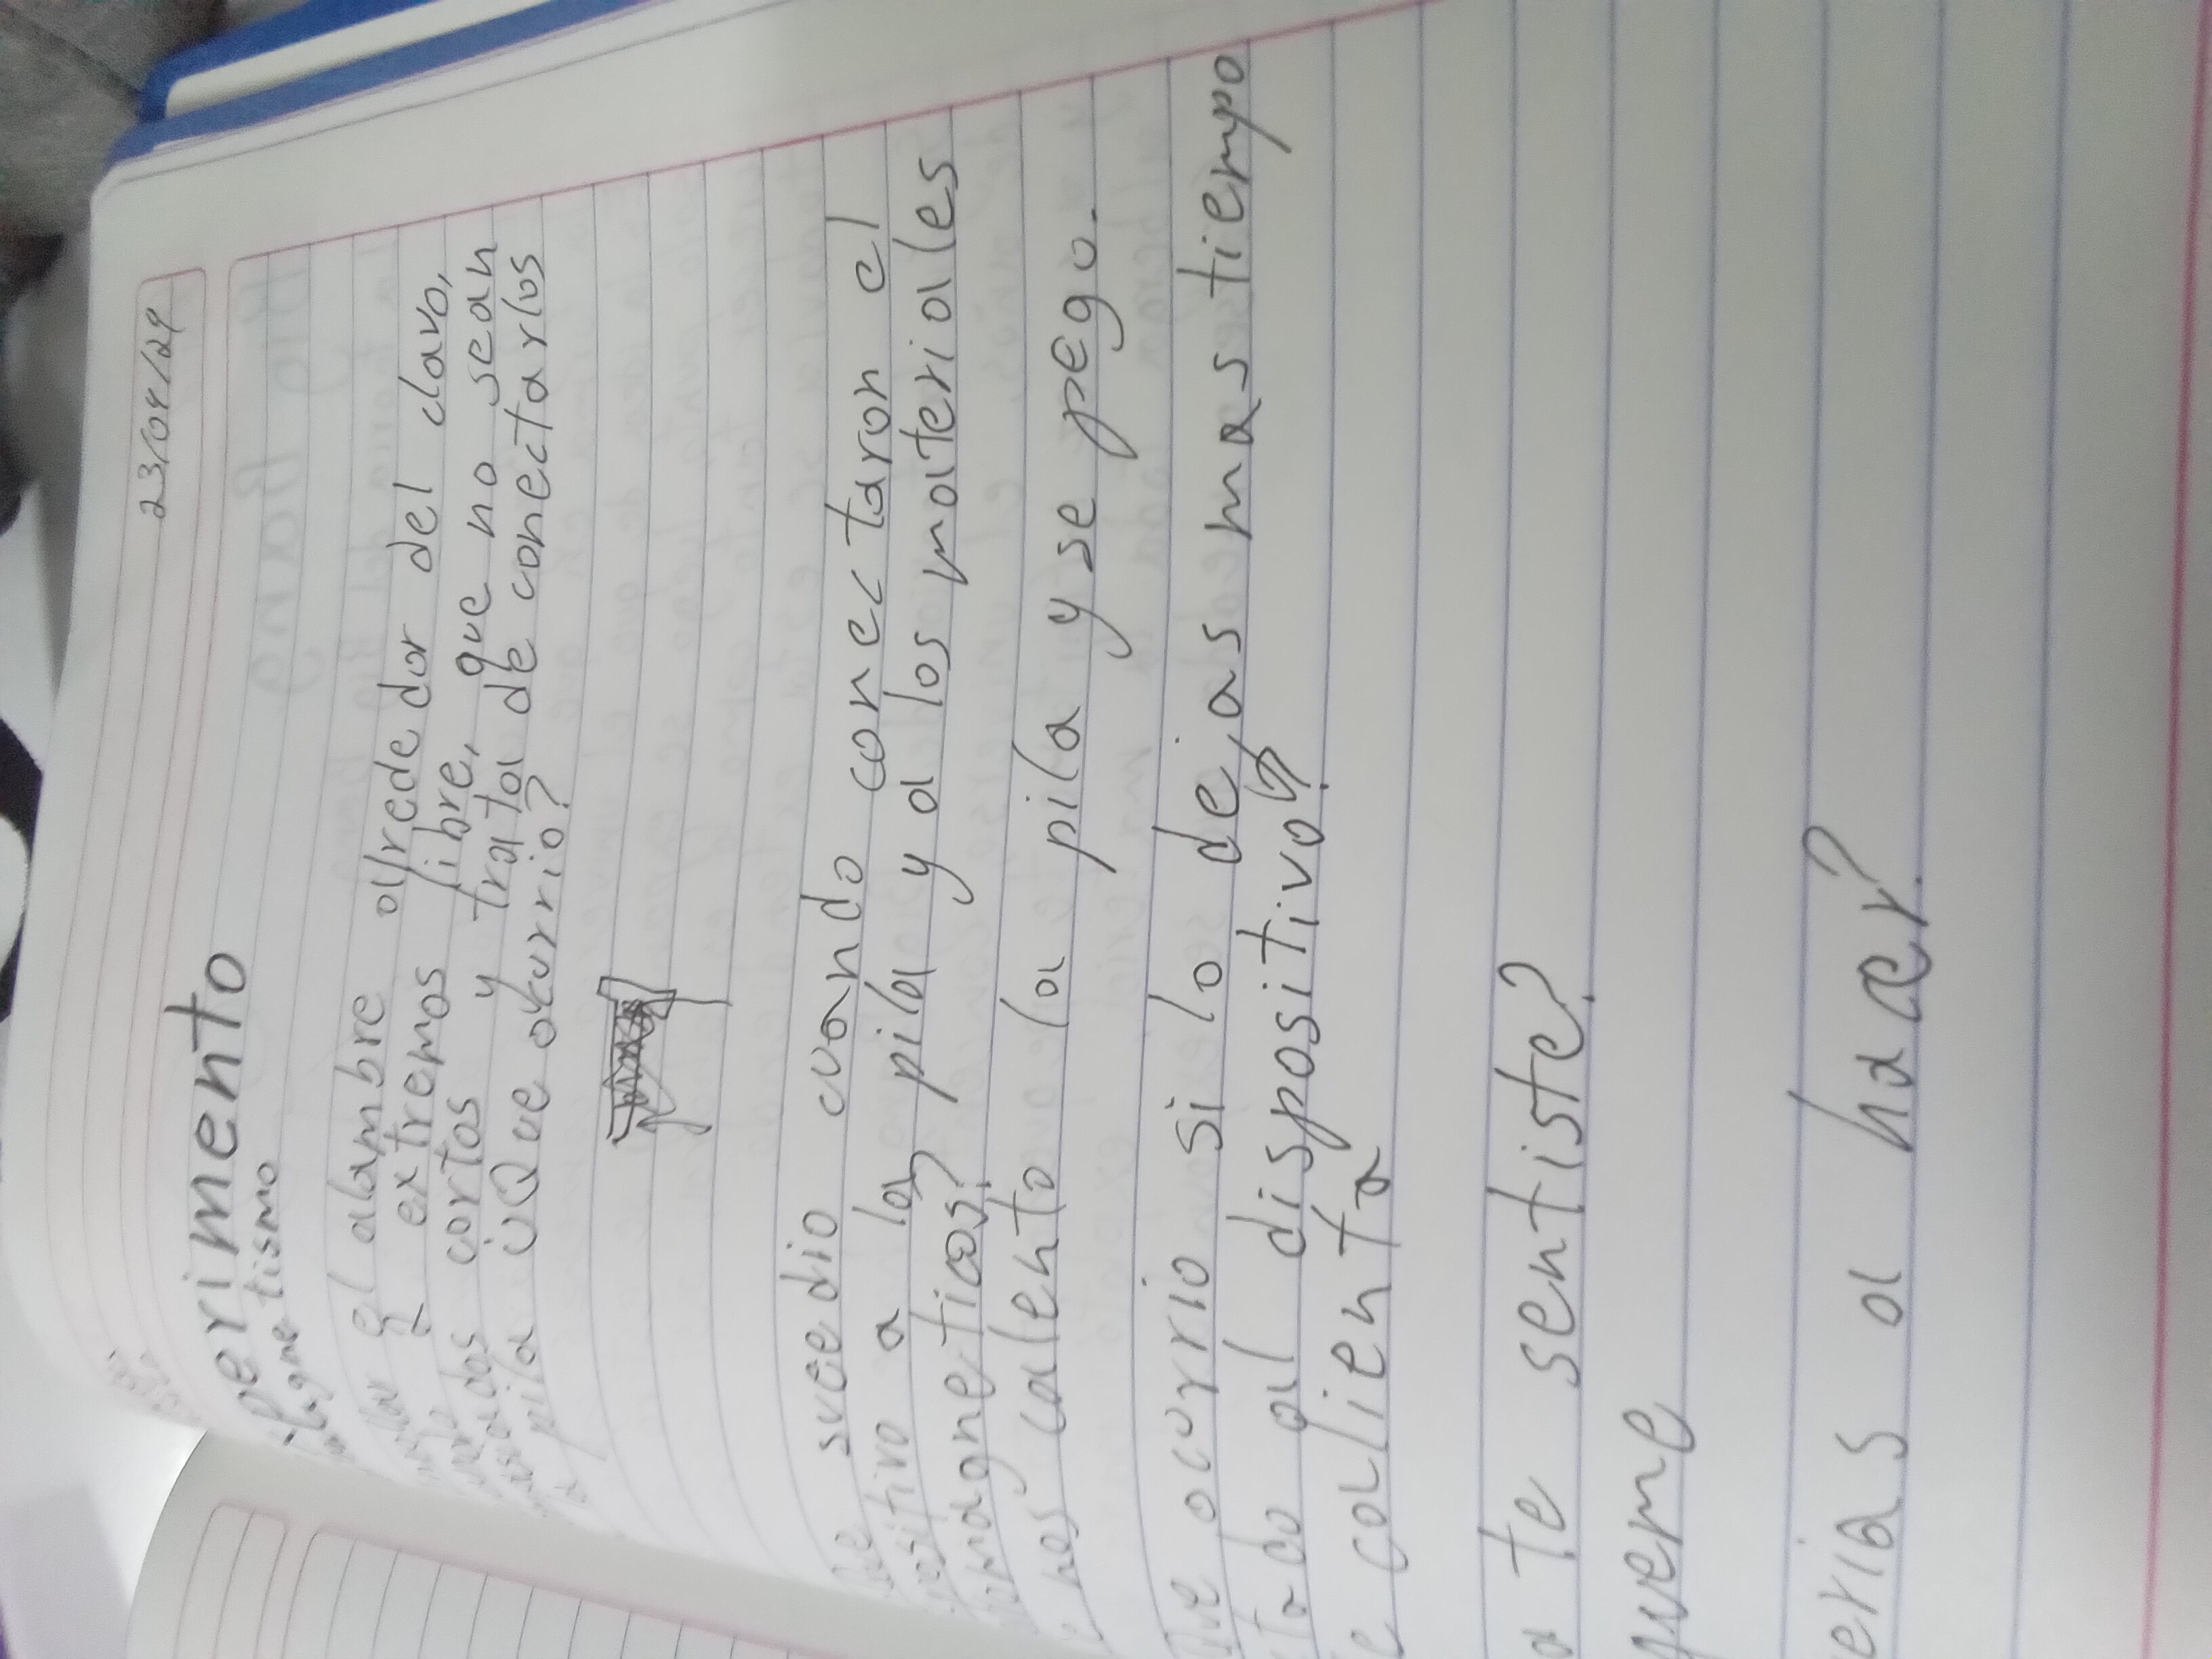 23/04/24
perimento
magnetismo
el alambre alrededor del clavo,
2 extremos libre, que no sean
cortos y trata de conectarlos
a pila ¿Que okurrio?
sucedio cuando conectaron el
positivo a la pila y a los materiales
magneticos?
nos calento la pila y se pego.
ocurrio si lo dejas mas tiempo
al dispositivo?
calienta
te sentiste?
queme
erias a hacer?